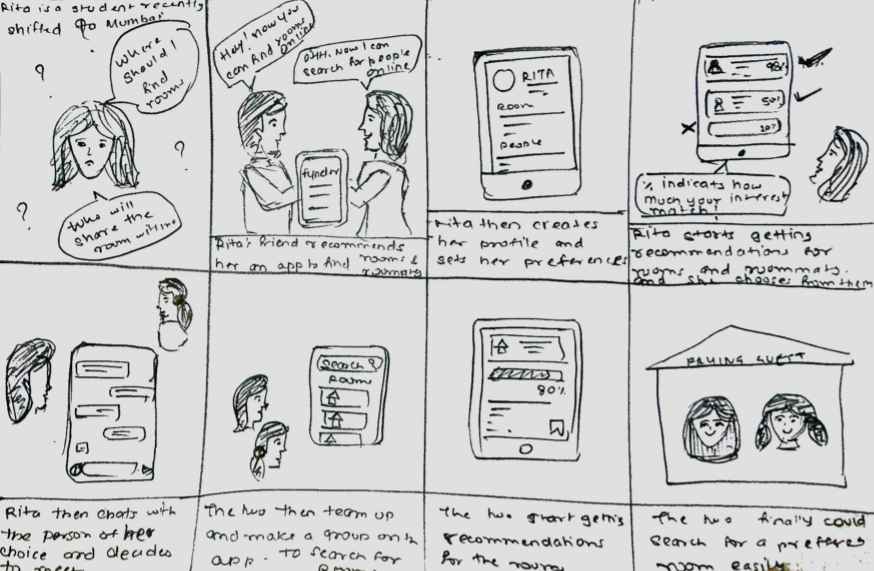 Rita is a student recently
shifted to Mumbai
Where
should I
find
rooms
Who will
share the
room with me
Hey! now you
can find rooms
online
Ohh. Now I can
search for people
online
Rita's friend recommends
her an app to find rooms &
RITA
Room
People
Rita then creates
her profile and
sets her preferences
50%
% indicats how
much your interest
match!
Rita starts getting
recommendations for
rooms and roommats.
and she chooses from them
Rita then chats with
the person of her
choice and decides
Search
Room
The two then team up
and make a group on the
app. to search for
80%
The two start getting
recommendations
for the rooms
PAYING GUEST
The two finally could
search for a preferes
room easily